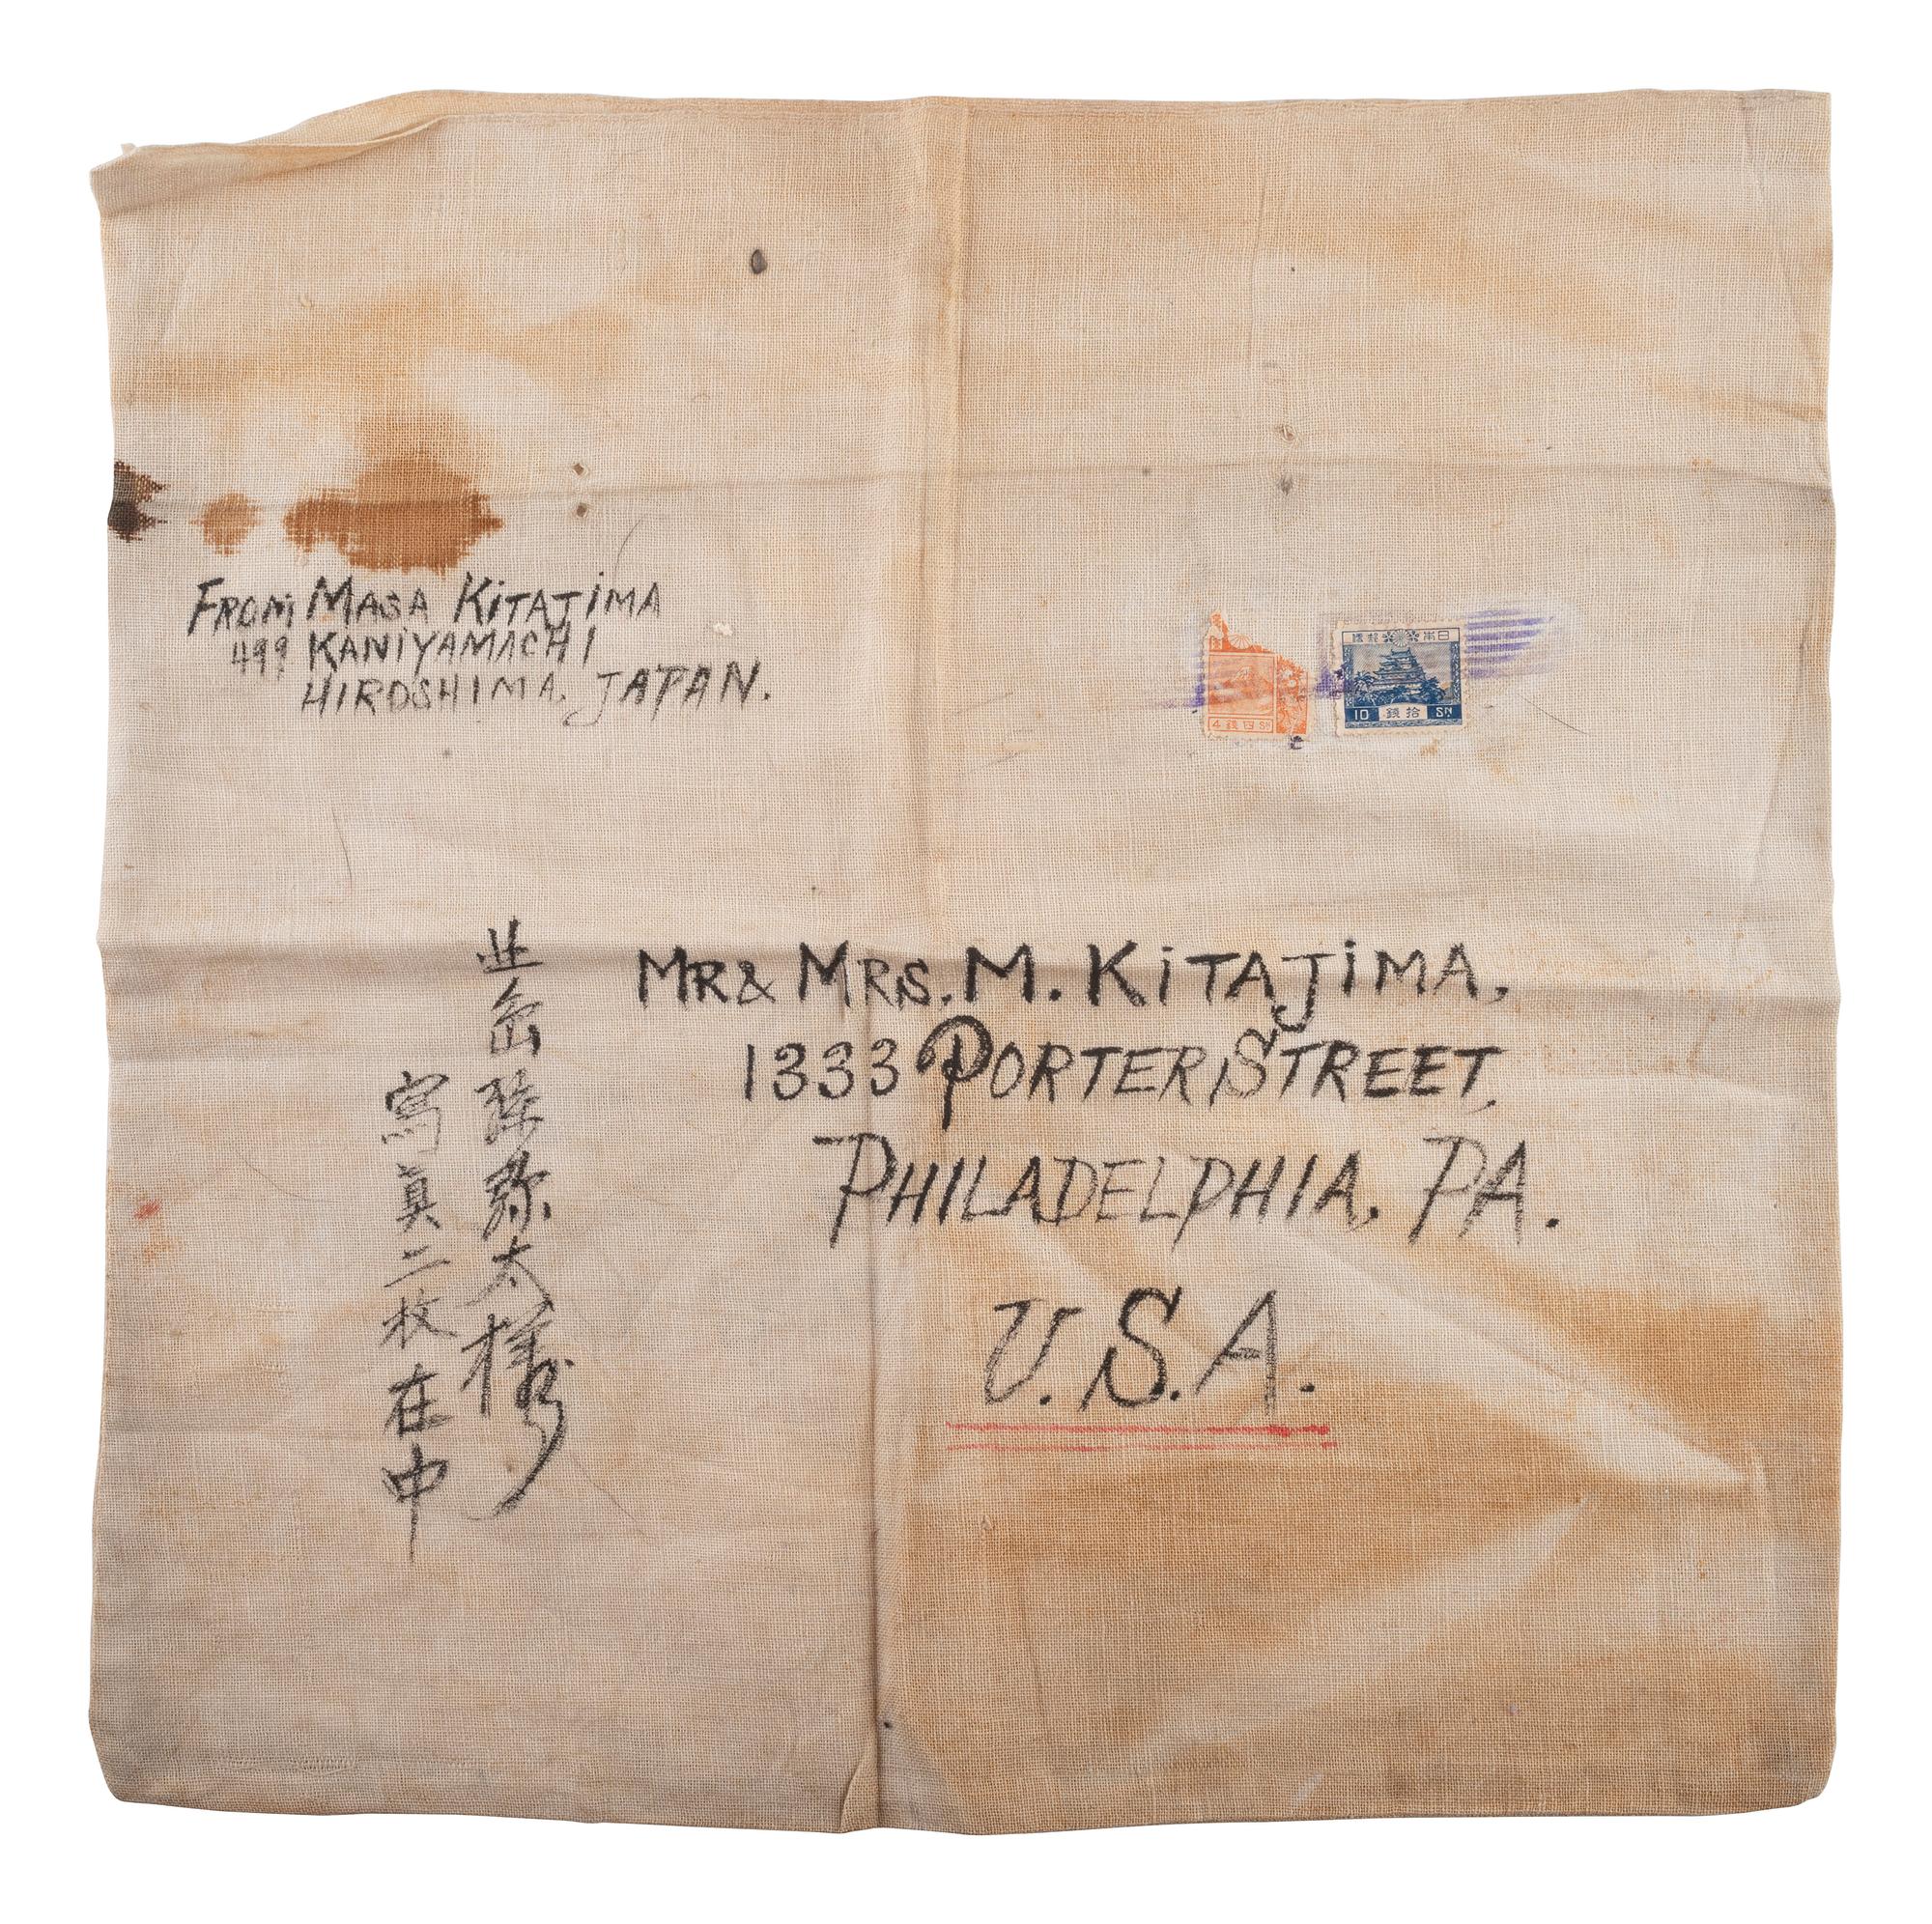 FROM MASA KITAJIMA
499 KANIYAMACHI
HIROSHIMA. JAPAN.
日本郵
4 銭四 SN
10 銭拾 SN
MR & MRS. M. KITAJIMA,
1333 PORTER, STREET,
PHILADELPHIA, PA.
U.S.A.
弥太様
寫眞二枚在中